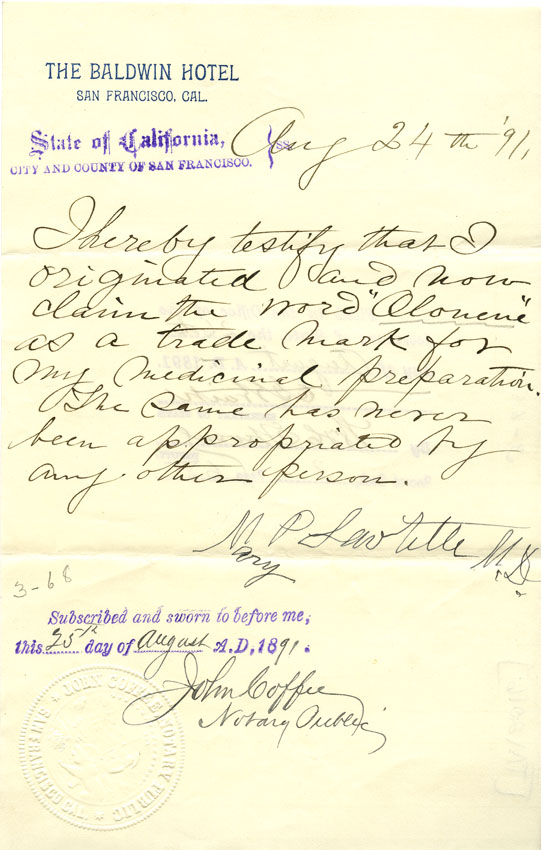 THE BALDWIN HOTEL
SAN FRANCISCO, CAL.
Aug 24th '91,
State of California, } SS
CITY AND COUNTY OF SAN FRANCISCO.
I hereby testify that I
originated and now
claim the word "Olonene"
as a trade mark for
my medicinal preparation.
The same has never
been appropriated by
any other person.
Mary P M.D.
3-68
Subscribed and sworn to before me,
this 25th day of August A.D, 1891.
John Coffee
Notary Public
JOHN COFFEE, NOTARY PUBLIC
SAN FRANCISCO CAL.